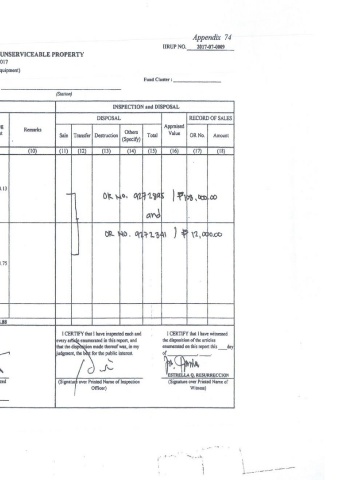 Appendix 74
IIRUP NO. 2017-07-0009
UNSERVICEABLE PROPERTY
017
quipment)
Fund Cluster :
(Station)
INSPECTION and DISPOSAL
DISPOSAL
RECORD OF SALES
Remarks
Sale
Transfer
Destruction
Others (Specify)
Total
Appraised Value
OR No.
Amount
(10)
(11)
(12)
(13)
(14)
(15)
(16)
(17)
(18)
.13
OR No. 9272895 / ₱108,000.00
and
OR NO. 9272341 / ₱ 12,000.00
.75
.88
I CERTIFY that I have inspected each and
every article enumerated in this report, and
that the disposition made thereof was, in my
judgment, the best for the public interest.
(Signature over Printed Name of Inspection
Officer)
I CERTIFY that I have witnessed
the disposition of the articles
enumerated on this report this ___day
of
ESTRELLA Q. RESURRECCION
(Signature over Printed Name of
Witness)